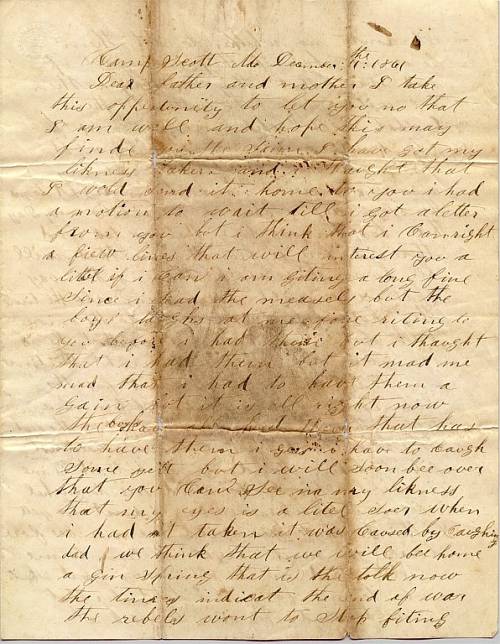 Camp Scott Mo December the 1861
Dear father and mother I take
this oppertunity to let you no that
I am well and hope this may
finde you the same I have got my
likness taken and I thaught that
I wold send it home to you i had
a motion to wait till i got a letter
from you but i think that i can right
a fiew lines that will interest you a
litel if i can i am giting a long fine
Since i had the measels but the
boys laughs at me fore riting to
you before i had them but i thaught
that i had them but it mad me
mad that i had to have them a
gain but it is all right now
the boys had them that has
to have them i have to caugh
Some yet but i will soon bee over
that you can See on my likness
that my eyes is a litel Soer when
i had it taken it was caused by caughing
dad we think that we will bee home
a gin Spring that is the talk now
the times indicat the end of war
the rebels wont to Stop fiting